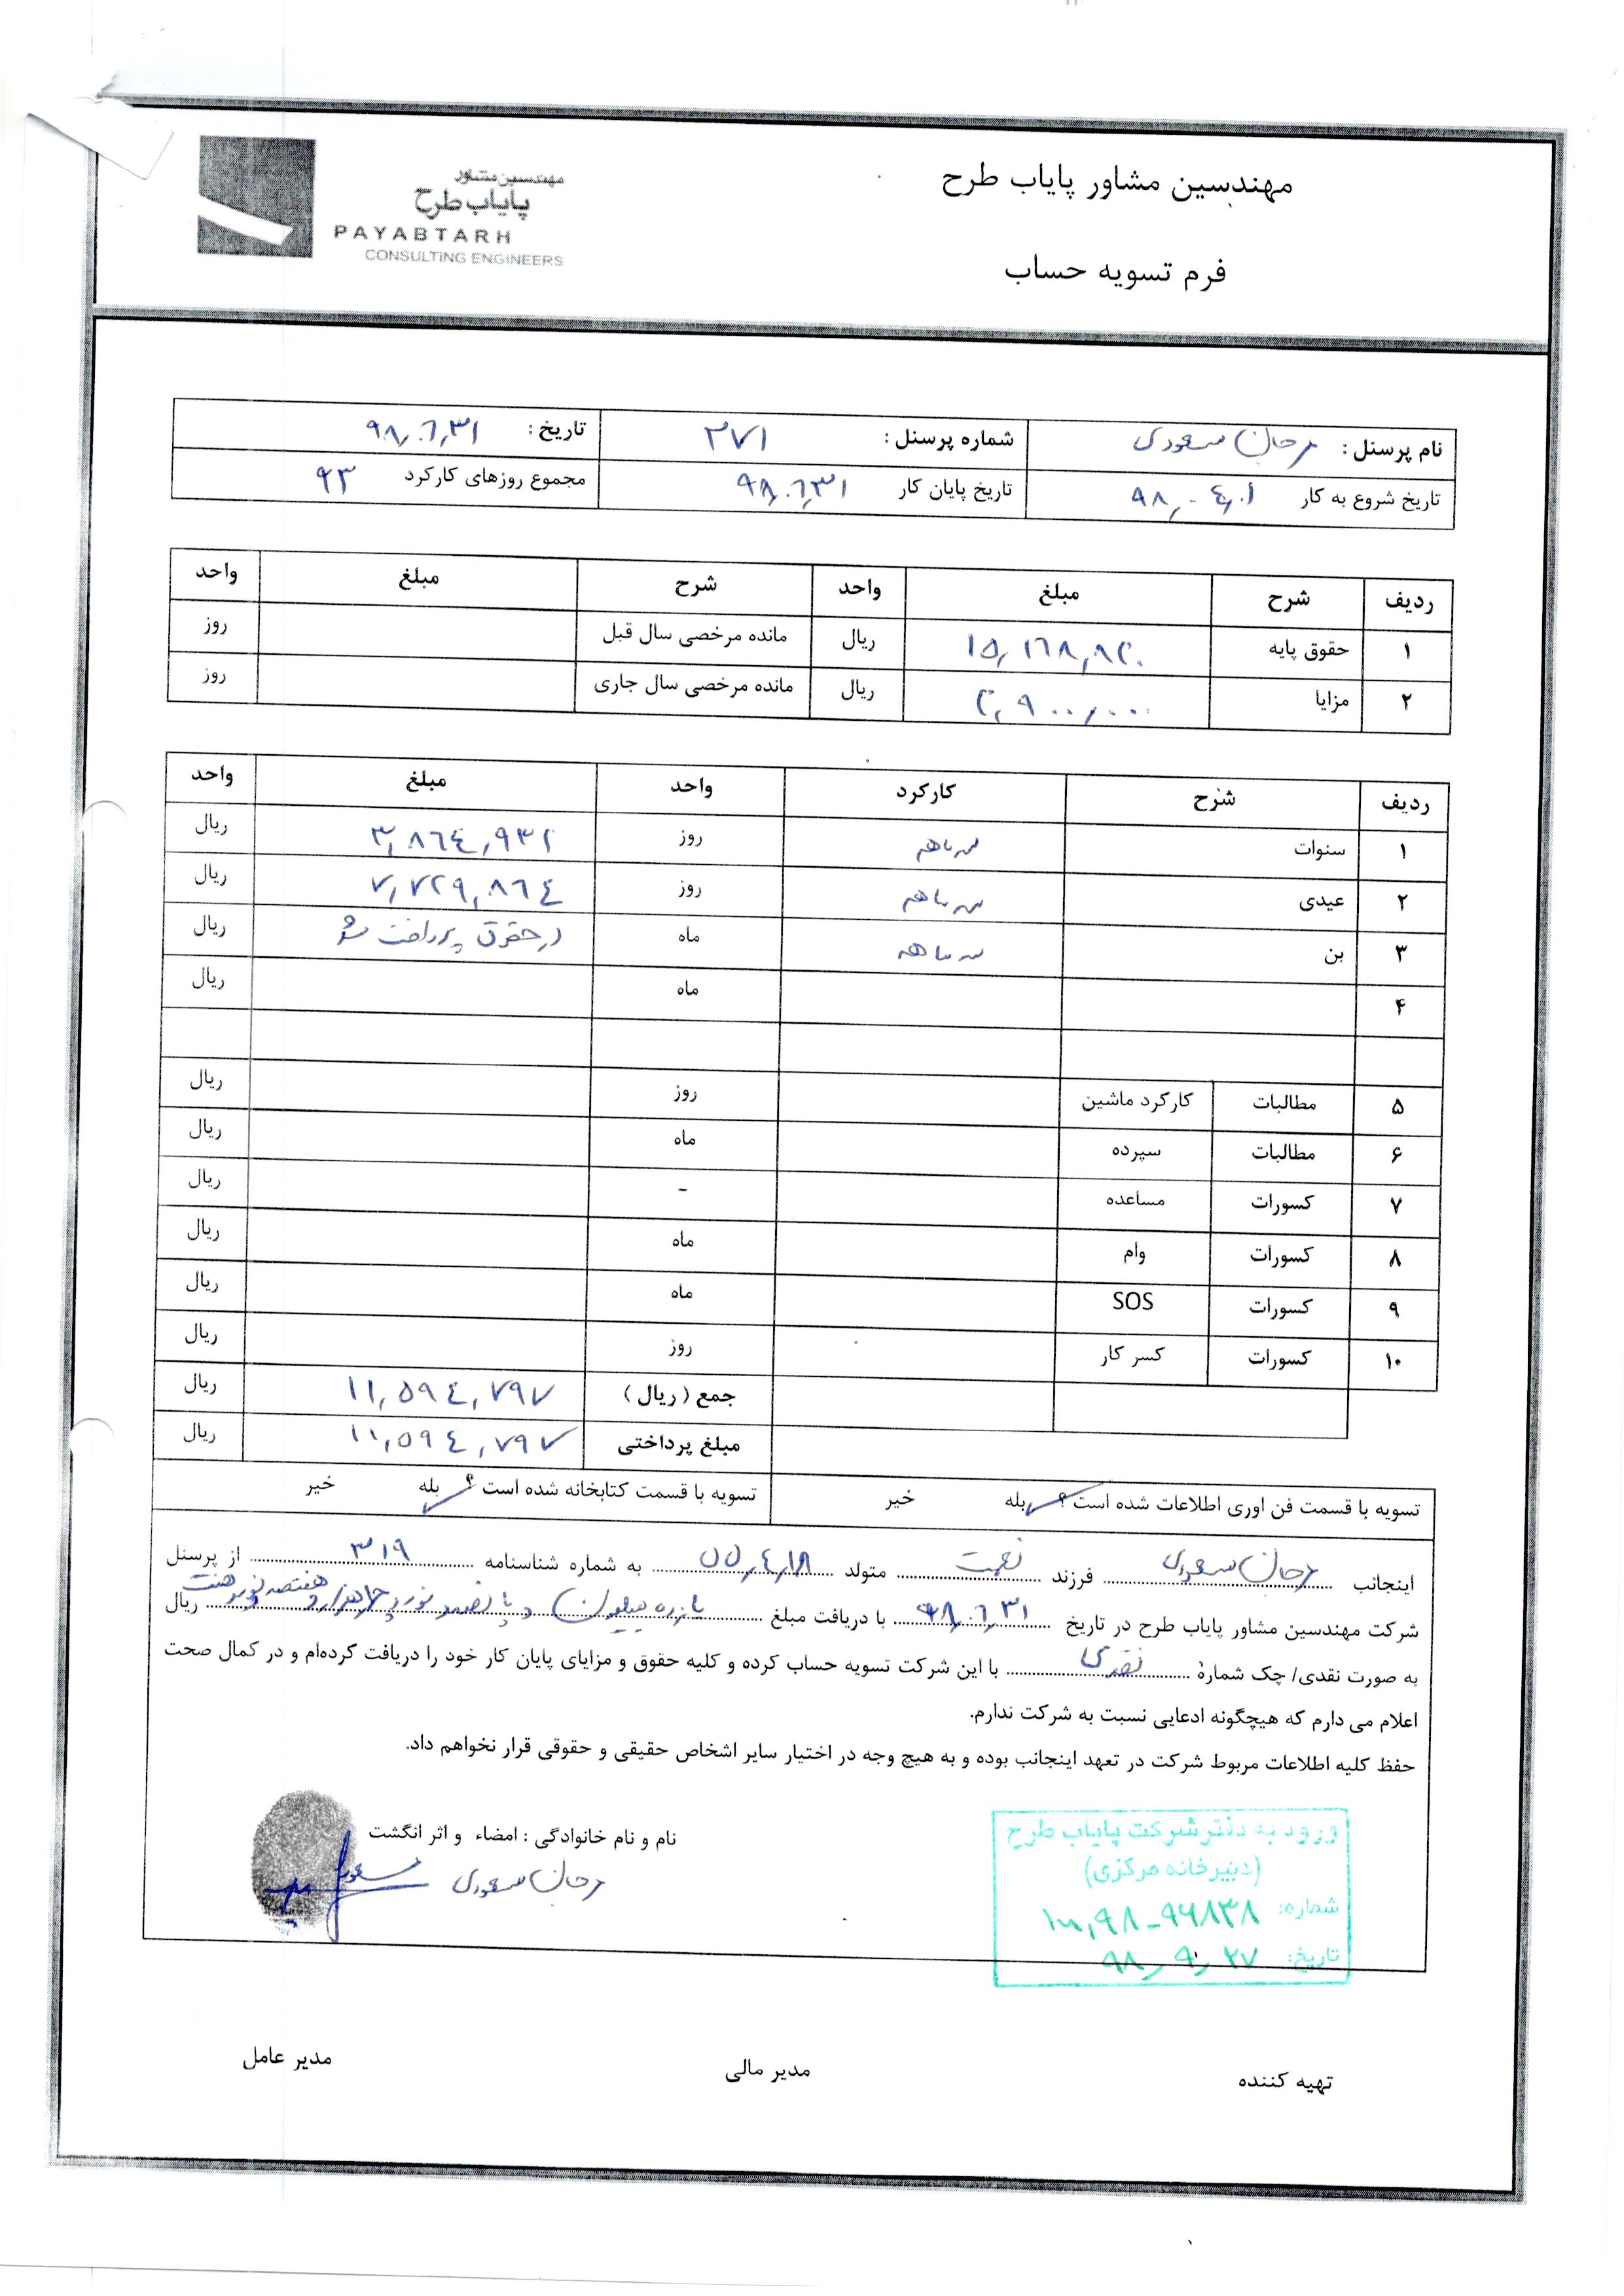 مهندسین مشاور پایاب طرح
فرم تسویه حساب
مهندسین مشاور
پایاب طرح
PAYABTARH
CONSULTING ENGINEERS
نام پرسنل : مرجان مسعودی شماره پرسنل : ۳۷۱ تاریخ : ۹۸,۰۶,۳۱
تاریخ شروع به کار ۹۸,۰۴,۰۱ تاریخ پایان کار ۹۸,۰۶,۳۱ مجموع روزهای کارکرد ۹۳
ردیف شرح مبلغ واحد شرح مبلغ واحد
۱ حقوق پایه ۱۵,۱۶۸,۸۲۰ ریال مانده مرخصی سال قبل روز
۲ مزایا ۲,۹۰۰,۰۰۰ ریال مانده مرخصی سال جاری روز
ردیف شرح کارکرد واحد مبلغ واحد
۱ سنوات سه ماهه روز ۳,۸۶۴,۹۳۲ ریال
۲ عیدی سه ماهه روز ۷,۷۲۹,۸۶۴ ریال
۳ بن سه ماهه ماه در حقوق پرداخت شد ریال
۴ ماه ریال
۵ مطالبات کارکرد ماشین روز ریال
۶ مطالبات سپرده ماه ریال
۷ کسورات مساعده - ریال
۸ کسورات وام ماه ریال
۹ کسورات SOS ماه ریال
۱۰ کسورات کسر کار روز ریال
جمع ( ریال ) ۱۱,۵۹۴,۷۹۷ ریال
مبلغ پرداختی ۱۱,۵۹۴,۷۹۷ ریال
تسویه با قسمت فن اوری اطلاعات شده است ؟ بله خیر تسویه با قسمت کتابخانه شده است ؟ بله خیر
اینجانب مرجان مسعودی فرزند نعمت متولد ۵۵,۴,۱۸ به شماره شناسنامه ۳۱۹ از پرسنل
شرکت مهندسین مشاور پایاب طرح در تاریخ ۹۸,۰۶,۳۱ با دریافت مبلغ یازده میلیون و پانصد نود و چهار هزار و هفتصد نود و هفت ریال
به صورت نقدی/ چک شمارهٔ نقدی با این شرکت تسویه حساب کرده و کلیه حقوق و مزایای پایان کار خود را دریافت کرده‌ام و در کمال صحت
اعلام می دارم که هیچگونه ادعایی نسبت به شرکت ندارم.
حفظ کلیه اطلاعات مربوط شرکت در تعهد اینجانب بوده و به هیچ وجه در اختیار سایر اشخاص حقیقی و حقوقی قرار نخواهم داد.
نام و نام خانوادگی : امضاء و اثر انگشت
مرجان مسعودی
ورود به دفتر شرکت پایاب طرح
(دبیرخانه مرکزی)
شماره:
تاریخ: ۹۸,۹,۲۷
تهیه کننده مدیر مالی مدیر عامل